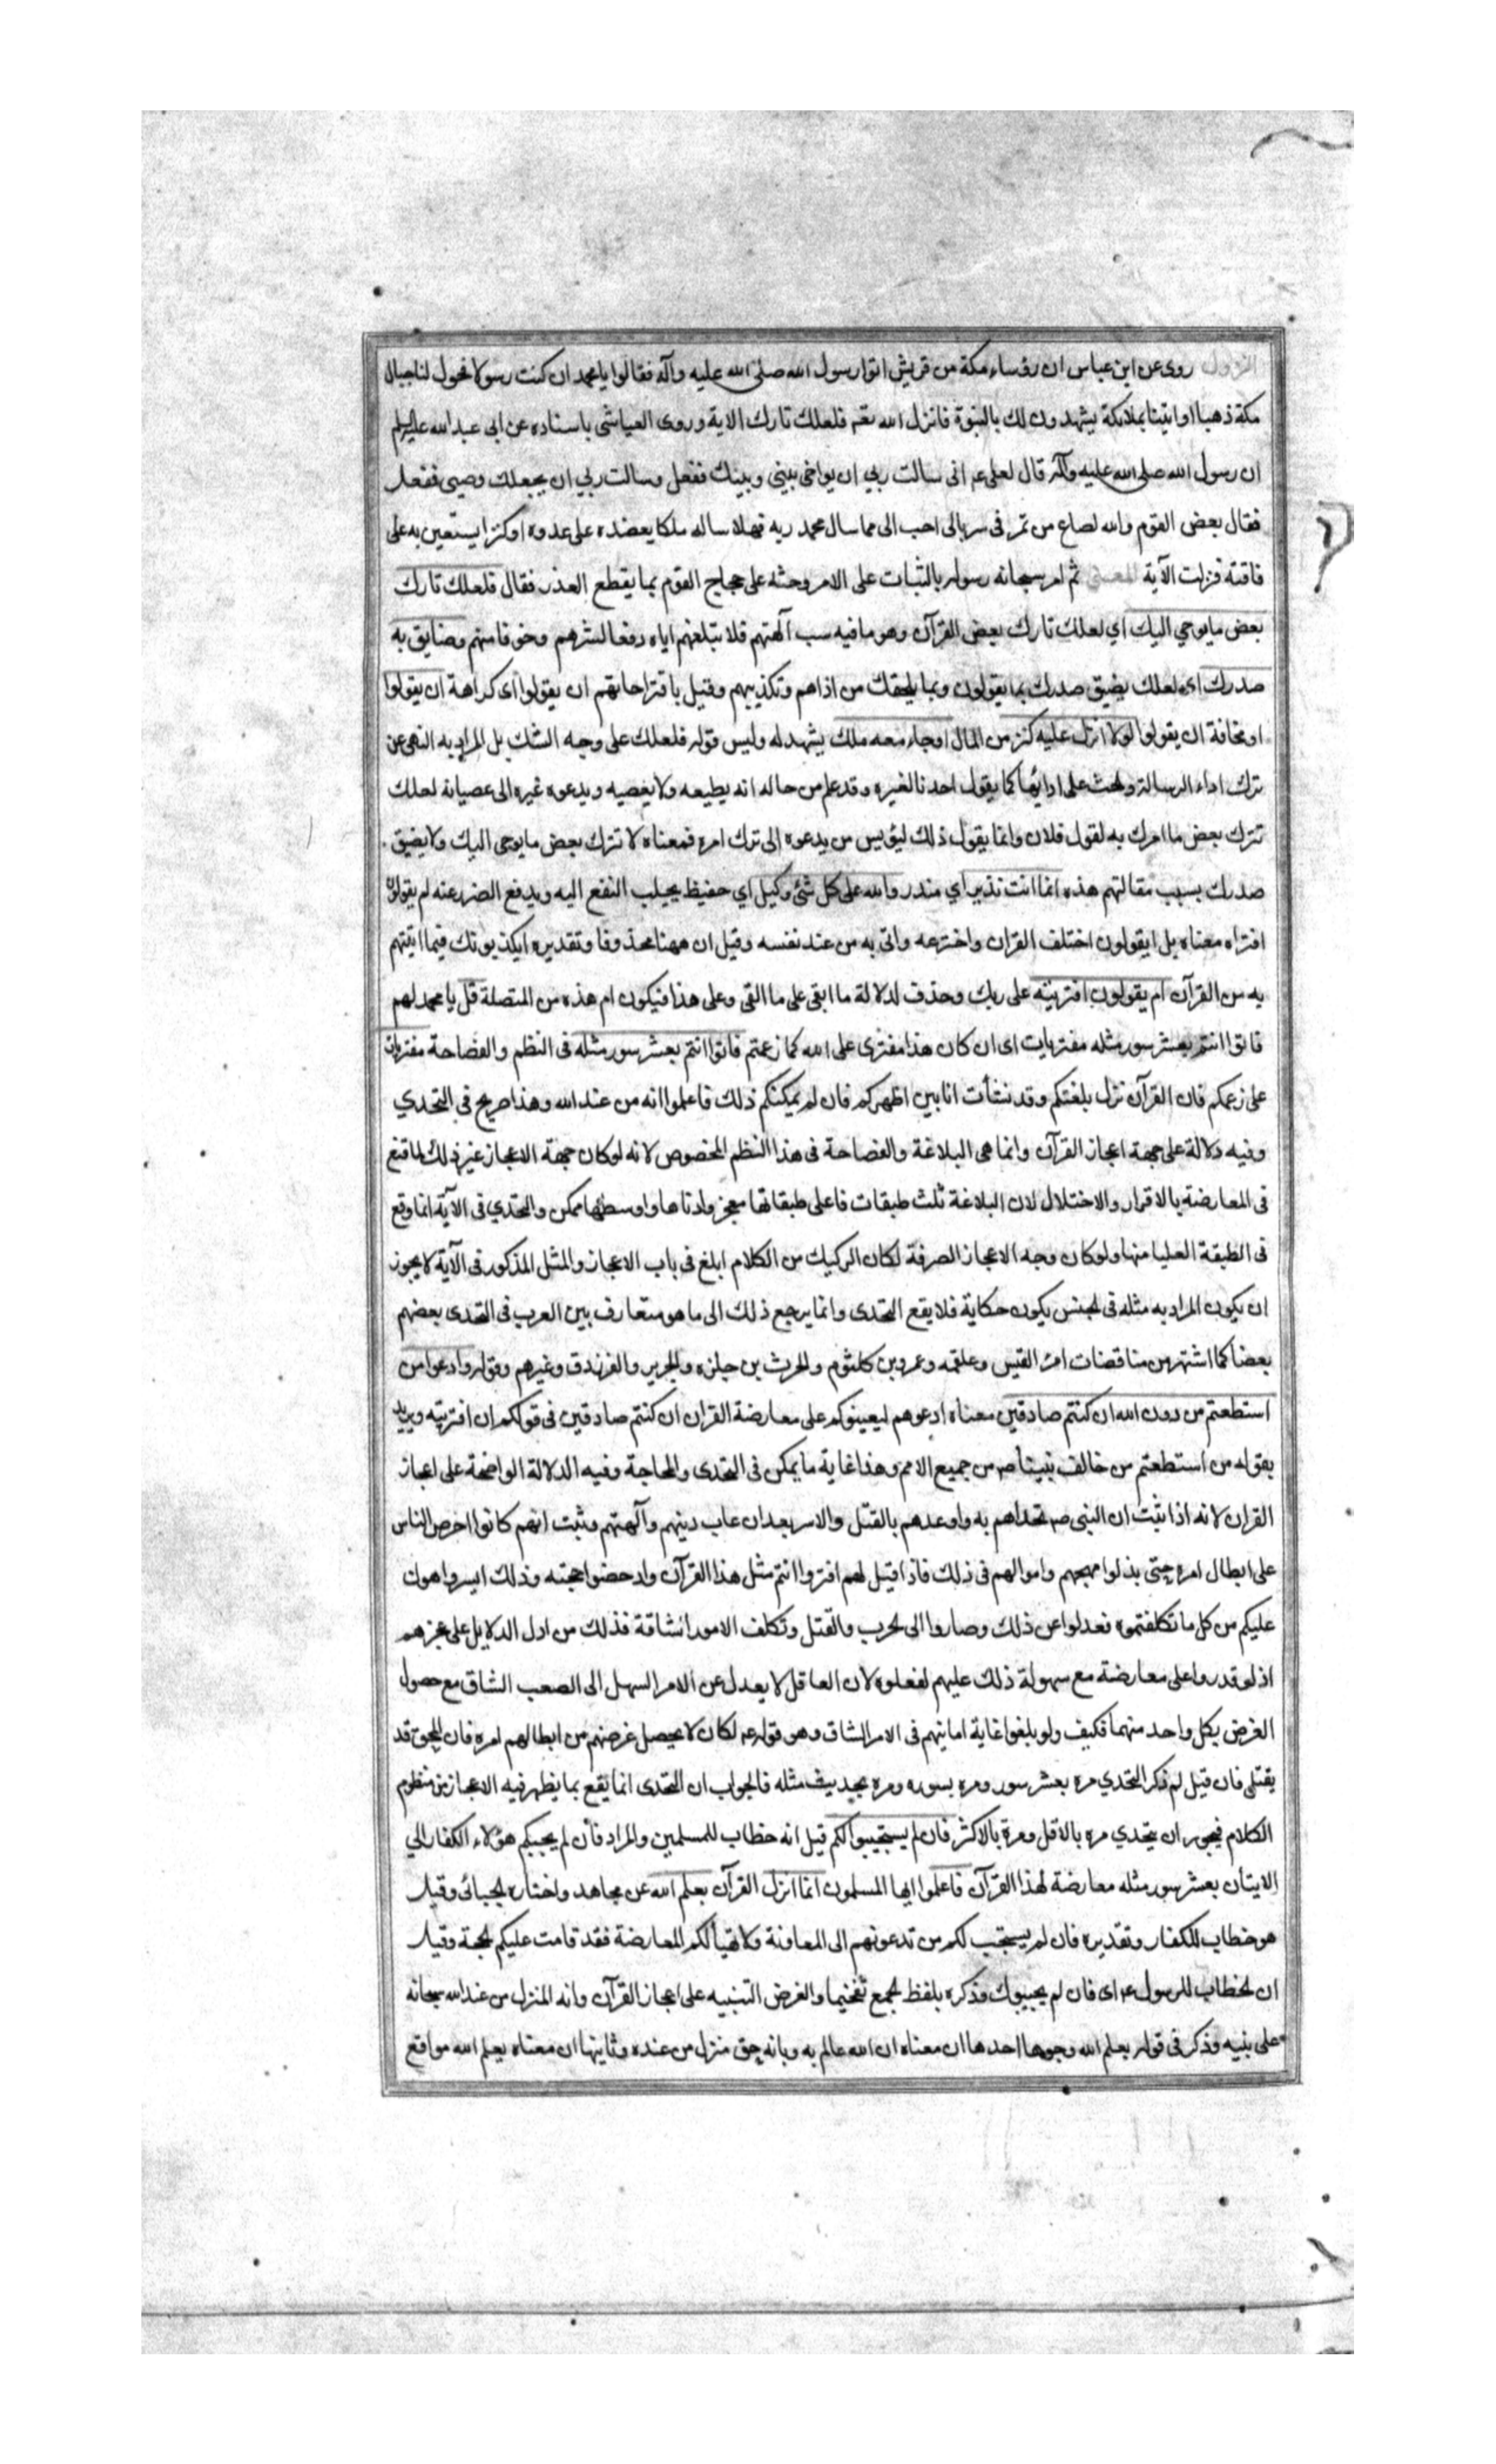 النزول روى عن ابن عباس ان رؤساء مكة من قريش اتوا رسول الله صلى الله عليه وآله فقالوا يا محمد ان كنت رسولا فحول لنا جبال
مكة ذهبا او ايتنا بملائكة يشهدون لك بالنبوة فانزل الله تعه فلعلك تارك الاية وروى العياشى باسناده عن ابى عبدالله عليه السلم
ان رسول الله صلى الله عليه وآله قال لعلى عه انى سالت ربي ان يواخى بينى وبينك ففعل وسالت ربي ان يجعلك وصيى ففعل
فقال بعض القوم والله لصاع من تمر فى سربالى احب الى مما سال محمد ربه فهلا ساله ملكا يعضده على عدوه او كنزا يستعين به على
فاقته فنزلت الآية المعنى ثم امر سبحانه رسوله بالثبات على الامر وحثه على حجاج القوم بما يقطع العذر فقال فلعلك تارك
بعض ما يوحي اليك اي لعلك تارك بعض القرآن وهو ما فيه سب آلهتهم فلا تبلغهم اياه دفعا لشرهم وخوفا منهم وضايق به
صدرك اى لعلك يضيق صدرك بما يقولون وبما يلحقك من اذاهم وتكذيبهم وقيل باقتراحاتهم ان يقولوا اى كراهة ان يقولوا
او مخافة ان يقولوا لولا انزل عليه كنز من المال او جاء معه ملك يشهد له وليس قوله فلعلك على وجه الشك بل المراد به النهى عن
ترك اداء الرسالة والحث على ادائها كما يقول احدنا لغيره وقد علم من حاله انه يطيعه ولا يعصيه ويدعوه غيره الى عصيانه لعلك
تترك بعض ما امرك به لقول فلان وانما يقول ذلك ليؤيس من يدعوه الى ترك امره فمعناه لا تترك بعض ما يوحى اليك ولا يضيق
صدرك بسبب مقالتهم هذه انما انت نذير اي منذر والله على كل شئ وكيل اي حفيظ يجيلب النفع اليه ويدفع الضرر عنه ام يقولون
افتراه معناه بل ايقولون اختلف القران واخترعه واتى به من عند نفسه وقيل ان ههنا محذوفا وتقديره ايكذبونك فيما اتيتهم
به من القرآن ام يقولون افتريته على ربك وحذف لدلالة ما ابقى على ما القى وعلى هذا فيكون ام هذه من المتصلة قل يا محمد لهم
فاتوا انتم بعشر سور مثله مفتريات اى ان كان هذا مفترى على الله كما زعمتم فاتوا انتم بعشر سور مثله فى النظم والفصاحة مفتريات
على زعمكم فان القرآن نزل بلغتكم وقد نشأت انا بين اظهركم فان لم يمكنكم ذلك فاعلموا انه من عند الله وهذا صريح فى التحدي
وفيه دلالة على جهة اعجاز القرآن وانما هى البلاغة والفصاحة فى هذا النظم المخصوص لانه لو كان جهة الاعجاز غير ذلك لما قنع
فى المعارضة بالاقرار والاختلال لان البلاغة ثلث طبقات فاعلى طبقاتها معجز وادناها واوسطها ممكن والتحدي فى الآية انما وقع
فى الطبقة العليا منها ولو كان وجه الاعجاز الصرفة لكان الركيك من الكلام ابلغ فى باب الاعجاز والمثل المذكور فى الآية لا يجوز
ان يكون المراد به مثله فى الجنس يكون حكاية فلا يقع التحدى وانما يرجع ذلك الى ما هو متعارف بين العرب فى التحدى بعضهم
بعضا كما اشتهر من مناقضات امرئ القيس وعلقمه وعمرو بن كلثوم والحرث بن حلزه والجرير والفرزدق وغيرهم وقوله وادعوا من
استطعتم من دون الله ان كنتم صادقين معناه ادعوهم ليعينوكم على معارضة القران ان كنتم صادقين فى قولكم ان افتريته ويريد
بقوله من استطعتم من خالف نبينا صه من جميع الامم وهذا غاية ما يمكن فى التحدى والمحاجة وفيه الدلالة الواضحة على اعجاز
القران لانه اذا ثبت ان النبى صه تحداهم به واوعدهم بالقتل والاسر بعد ان عاب دينهم وآلهتهم وثبت انهم كانوا احرص الناس
على ابطال امره حتى بذلوا مهجهم واموالهم فى ذلك فاذا قيل لهم افتروا انتم مثل هذا القرآن وادحضوا حجته وذلك ايسر واهون
عليكم من كل ما تكلفتموه فعدلوا عن ذلك وصاروا الى الحرب والقتل وتكلف الامور الشاقة فذلك من ادل الدلايل على عجزهم
اذ لو قدروا على معارضة مع سهولة ذلك عليهم لفعلوه لان العاقل لا يعدل عن الامر السهل الى الصعب الشاق مع حصول
الغرض بكل واحد منهما فكيف ولو بلغوا غاية امانيهم فى الامر الشاق وهو قوله عه لكان لا يحصل غرضهم من ابطالهم امره فان المحق قد
يقتل فان قيل لم ذكر التحدي مره بعشر سور ومره بسوره ومره بحديث مثله فالجواب ان التحدى انما يقع بما يظهر فيه الاعجاز من منظوم
الكلام فيجوز ان يتحدي مره بالاقل ومرة بالاكثر فان لم يستجيبوا لكم قيل انه خطاب للمسلمين والمراد فأن لم يجبكم هؤلاء الكفار الي
الايتان بعشر سور مثله معارضة لهذا القرآن فاعلموا ايها المسلمون انما انزل القرآن بعلم الله عن مجاهد واختاره الجبائى وقيل
هو خطاب للكفار وتقديره فان لم يستجب لكم من تدعونهم الى المعاونة ولا تهيأ لكم المعارضة فقد قامت عليكم الحجة وقيل
ان الخطاب للرسول عه اى فان لم يجيبوك وذكره بلفظ الجمع تفخيما والغرض التنبيه على اعجاز القرآن وانه المنزل من عند الله سبحانه
على نبيه وذكر فى قوله بعلم الله وجوها احدها ان معناه ان الله عالم به وبانه حق منزل من عنده وثانيها ان معناه بعلم الله مواقع